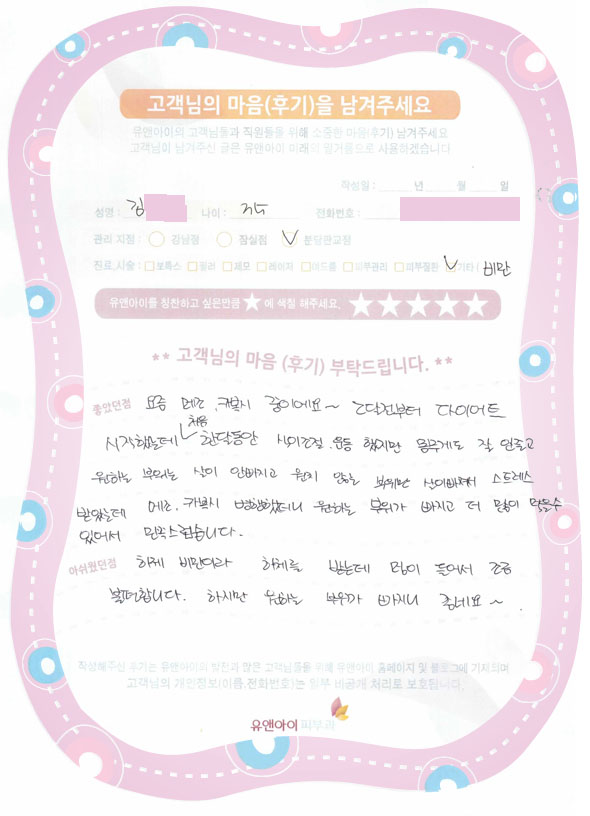 고객님의 마음(후기)을 남겨주세요
유앤아이의 고객님들과 직원들을 위해 소중한 마음(후기) 남겨주세요
고객님이 남겨주신 글은 유앤아이 미래의 밑거름으로 사용하겠습니다
작성일 : 년 월 일
성명 : 김 나이 : 전화번호 :
관리 지점 : 강남점 잠실점 분당판교점
진료,시술 : 보톡스 필러 제모 레이저 여드름 피부관리 피부질환 기타 ( 비만
유앤아이를 칭찬하고 싶은만큼 ★ 에 색칠 해주세요. ★★★★★
** 고객님의 마음 (후기) 부탁드립니다. **
좋았던점 요즘 메조, 카복시 중이에요~ 2달전부터 다이어트
시작했는데 처음 한달동안 식이조절, 운동 했지만 몸무게도 잘 안줄고
원하는 부위는 살이 안빠지고 원치 않는 부위만 살이빠져서 스트레스
받았는데 메조, 카복시 병행했더니 원하는 부위가 빠지고 더 많이 먹을수
있어서 만족스럽습니다.
아쉬웠던점 하체 비만이라 하체를 받는데 멍이 들어서 조금
불편합니다. 하지만 원하는 부위가 빠지니 좋네요~.
작성해주신 후기는 유앤아이의 발전과 많은 고객님들을 위해 유앤아이 홈페이지 및 블로그에 기재되며
고객님의 개인정보(이름,전화번호)는 일부 비공개 처리로 보호됩니다.
유앤아이 피부과